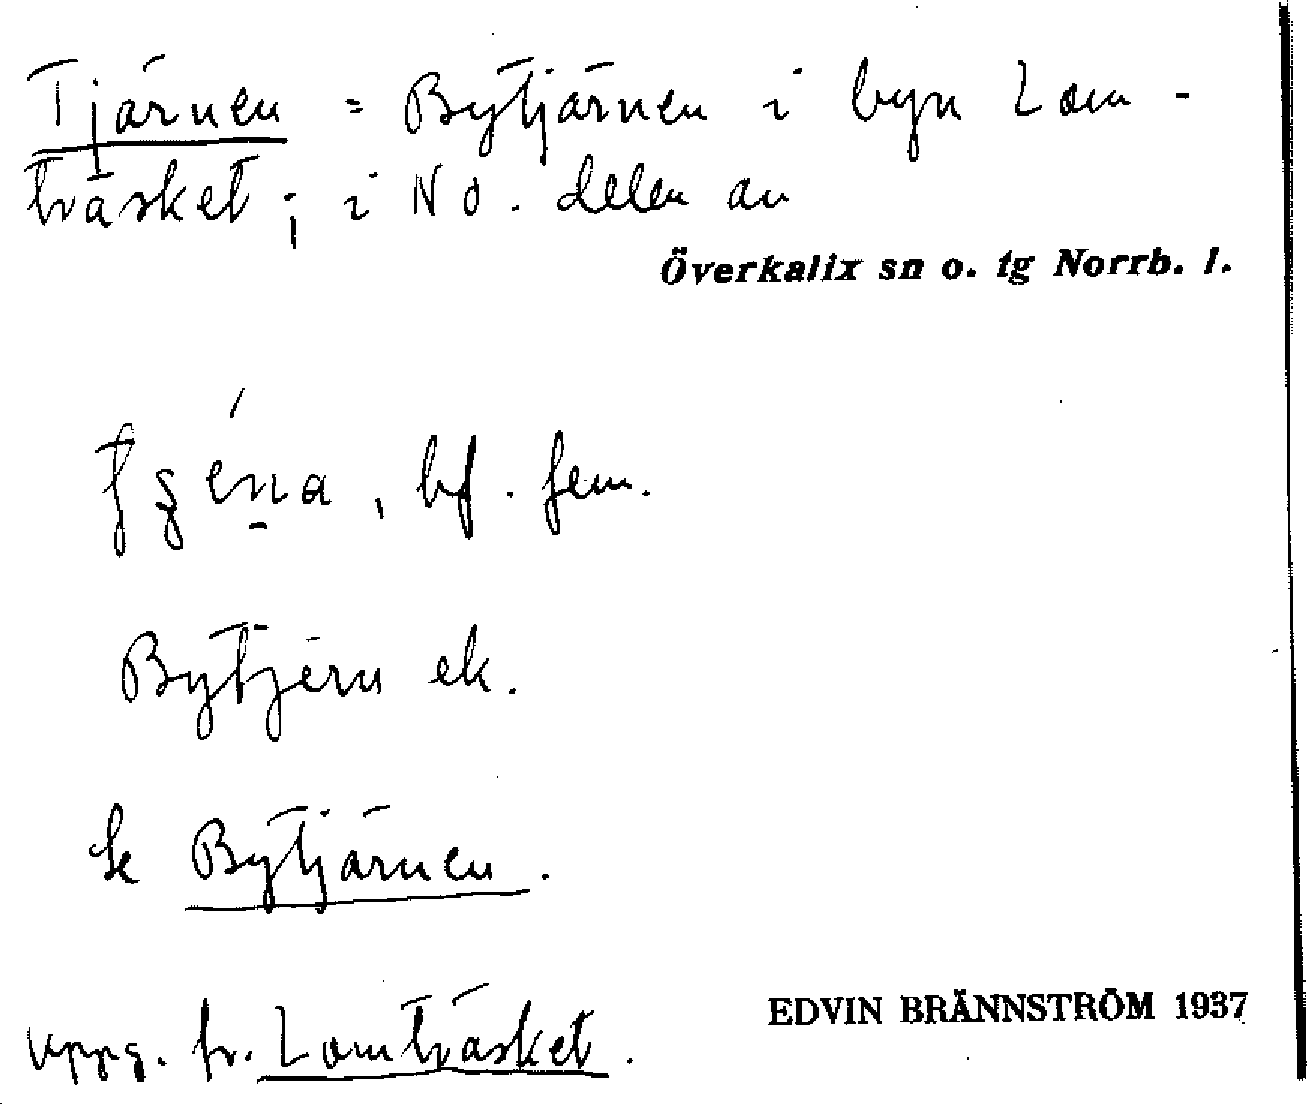 Tjärnen = Bytjärnen i byn Lom-
träsket; i NO. delen av
Överkalix sn o. tg Norrb. l.
bf. fem.
Bytjern ek.
Se Bytjärnen.
uppg. fr. Lomträsket.
EDVIN BRÄNNSTRÖM 1937